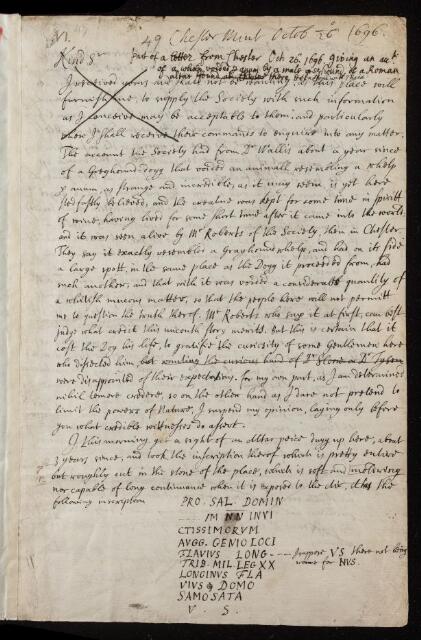 VI.
49 Chester Mint Octob. 26 1696.
Kind Sr
Part of a letter from Chester Oct 26. 1696. giving an acct.
of a whelp voided p anum by a male greyhound & a Roman
altar found at Chester there
I received yours and shall not be wanting, as this place will
furnish me, to supply the Society with such information
as I conceive may be acceptable to them, and particularly
when I shall receive their commands to enquire into any matter.
The account the Society had from Dr Wallis about a year since
of a Greyhound dogg that voided an animall resembling a whelp
p anum, as strange and incredible, as it may seem, is yet here
stedfastly believed, and the creature was kept for some time in spiritt
of wine, having lived for some short time after it came into the world,
and it was seen alive by Mr Roberts of the Society, then in Chester.
They say it exactly resembles a Grayhound whelp, and had on its side
a large spott, in the same place as the Dogg it proceeded from, had
such another; and that with it was voided a considerable quantity of
a whitish mucous matter, so that the people here will not permitt
me to question the truth therof. Mr Roberts who saw it at first, can best
judge what credit this uncouth story merits. But this is certain that it
cost the Dog his life, to gratifie the curiosity of some Gentlemen here
who dissected him, but wanting the curious hand of Dr Slone or Dr Tyson
were disappointed of their expectation. for my own part, as I am determined
nihil temere credere, so on the other hand as I dare not pretend to
limit the powers of Nature, I suspend my opinion, laying only before
you what credible witnesses do assert.
I this morning got a sight of an Alltar peice dugg up here, about
3 years since, and took the inscription therof which is pretty entire
but roughly cut in the stone of the place, which is soft and
nor capable of long continuance when it is exposed to the air. it has the
following inscription
PRO. SAL DOMIN
IM NN INVI
CTISSIMORVM
AVGG. GENIO LOCI
FLAVIUS LONG ---- suppose VS there not being
TRIB. MIL. LEG XX roome for NVS.
LONGINVS FLA
VIVS DOMO
SAMOSATA
V. S.